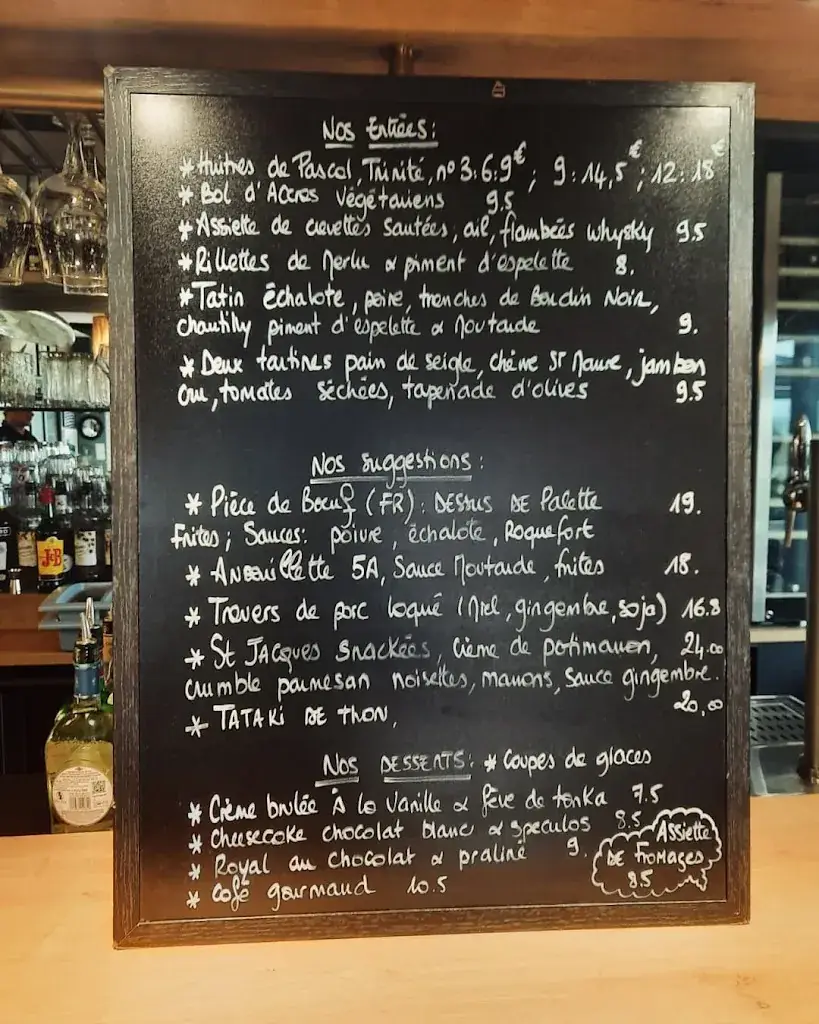 Nos Entrées :
* Huitres de Pascal, Trinité, n°3 : 6 : 9€ ; 9 : 14,5€ ; 12 : 18€
* Bol d'Accras végétariens 9.5
* Assiette de crevettes sautées, ail, flambées whysky 9.5
* Rillettes de Merlu & piment d'espelette 8.
* Tatin échalote, poire, tranches de Boudin Noir,
chantilly piment d'espelette & Moutarde 9.
* Deux tartines pain de seigle, chèvre St Maure, jambon
cru, tomates séchées, tapenade d'olives 9.5
Nos suggestions :
* Pièce de Boeuf (FR) : Dessus de Palette 19.
Frites ; Sauces : poivre, échalote, Roquefort
* Andouillette 5A, Sauce Moutarde, frites 18.
* Travers de porc laqué (Miel, gingembre, soja) 16.8
* St Jacques snackées, crème de potimarron, 24.00
crumble parmesan noisettes, marrons, sauce gingembre.
* TATAKI DE THON, 20,00
Nos DESSERTS : * Coupes de glaces
* Crème brulée à la vanille & fève de tonka 7.5
* Cheesecake chocolat blanc & speculos 8.5
* Royal au chocolat & praliné 9.
* Café gourmand 10.5
Assiette
DE Fromages
8.5
J&B